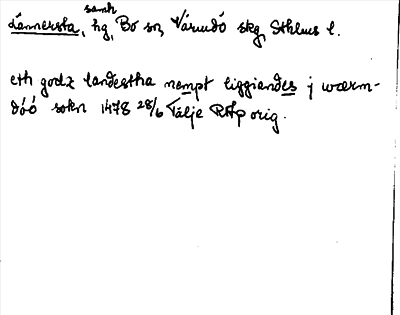 samh
Lännersta, hg, Bo sn, Värmdö skg, Sthlms l.
eth godz landestha nempt liggiandes j wærm-
döö sokn 1478 28/6 Tälje RAp orig.